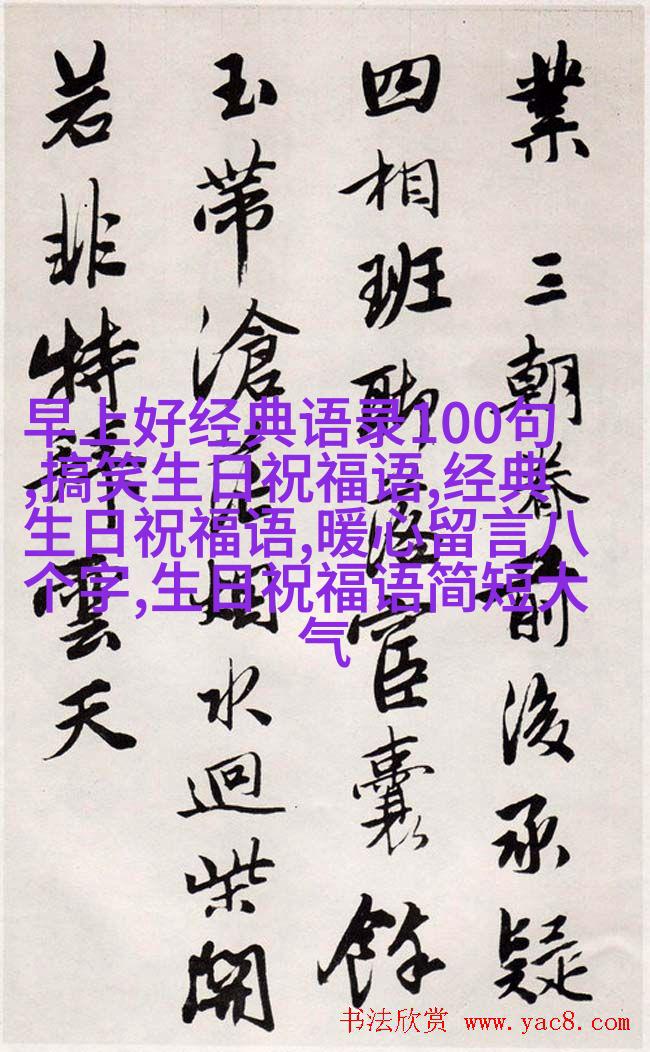 業 三朝眷前後承疑
四相班聊宦囊餘
玉帶滄烟水迴柴開
若非特雲天
早上好经典语录100句
,搞笑生日祝福语,经典
生日祝福语,暖心留言八
个字,生日祝福语简短大
气
书法欣赏 www.yac8.com